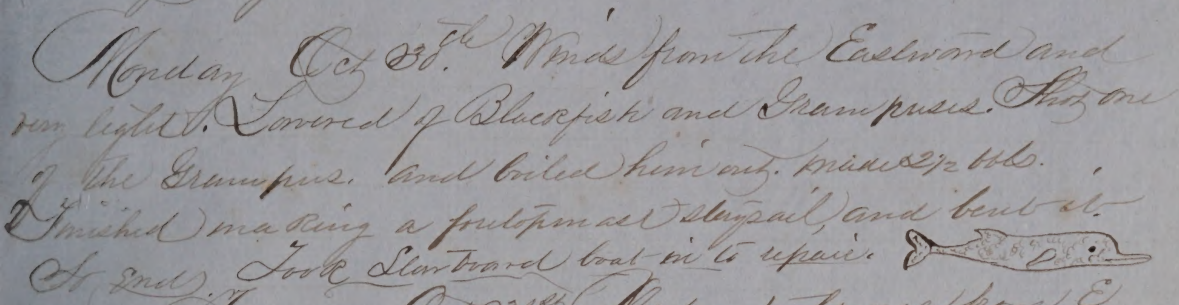 Monday Oct 30th. Winds from the Eastward and
very light. Lowered for Blackfish and Grampuses. Shot one
of the Grampus. and boiled him out. made 2 1/2 bbls.
Finished making a foretopmast staysail, and bent it.
So Ends. Took Starboard boat in to repair.